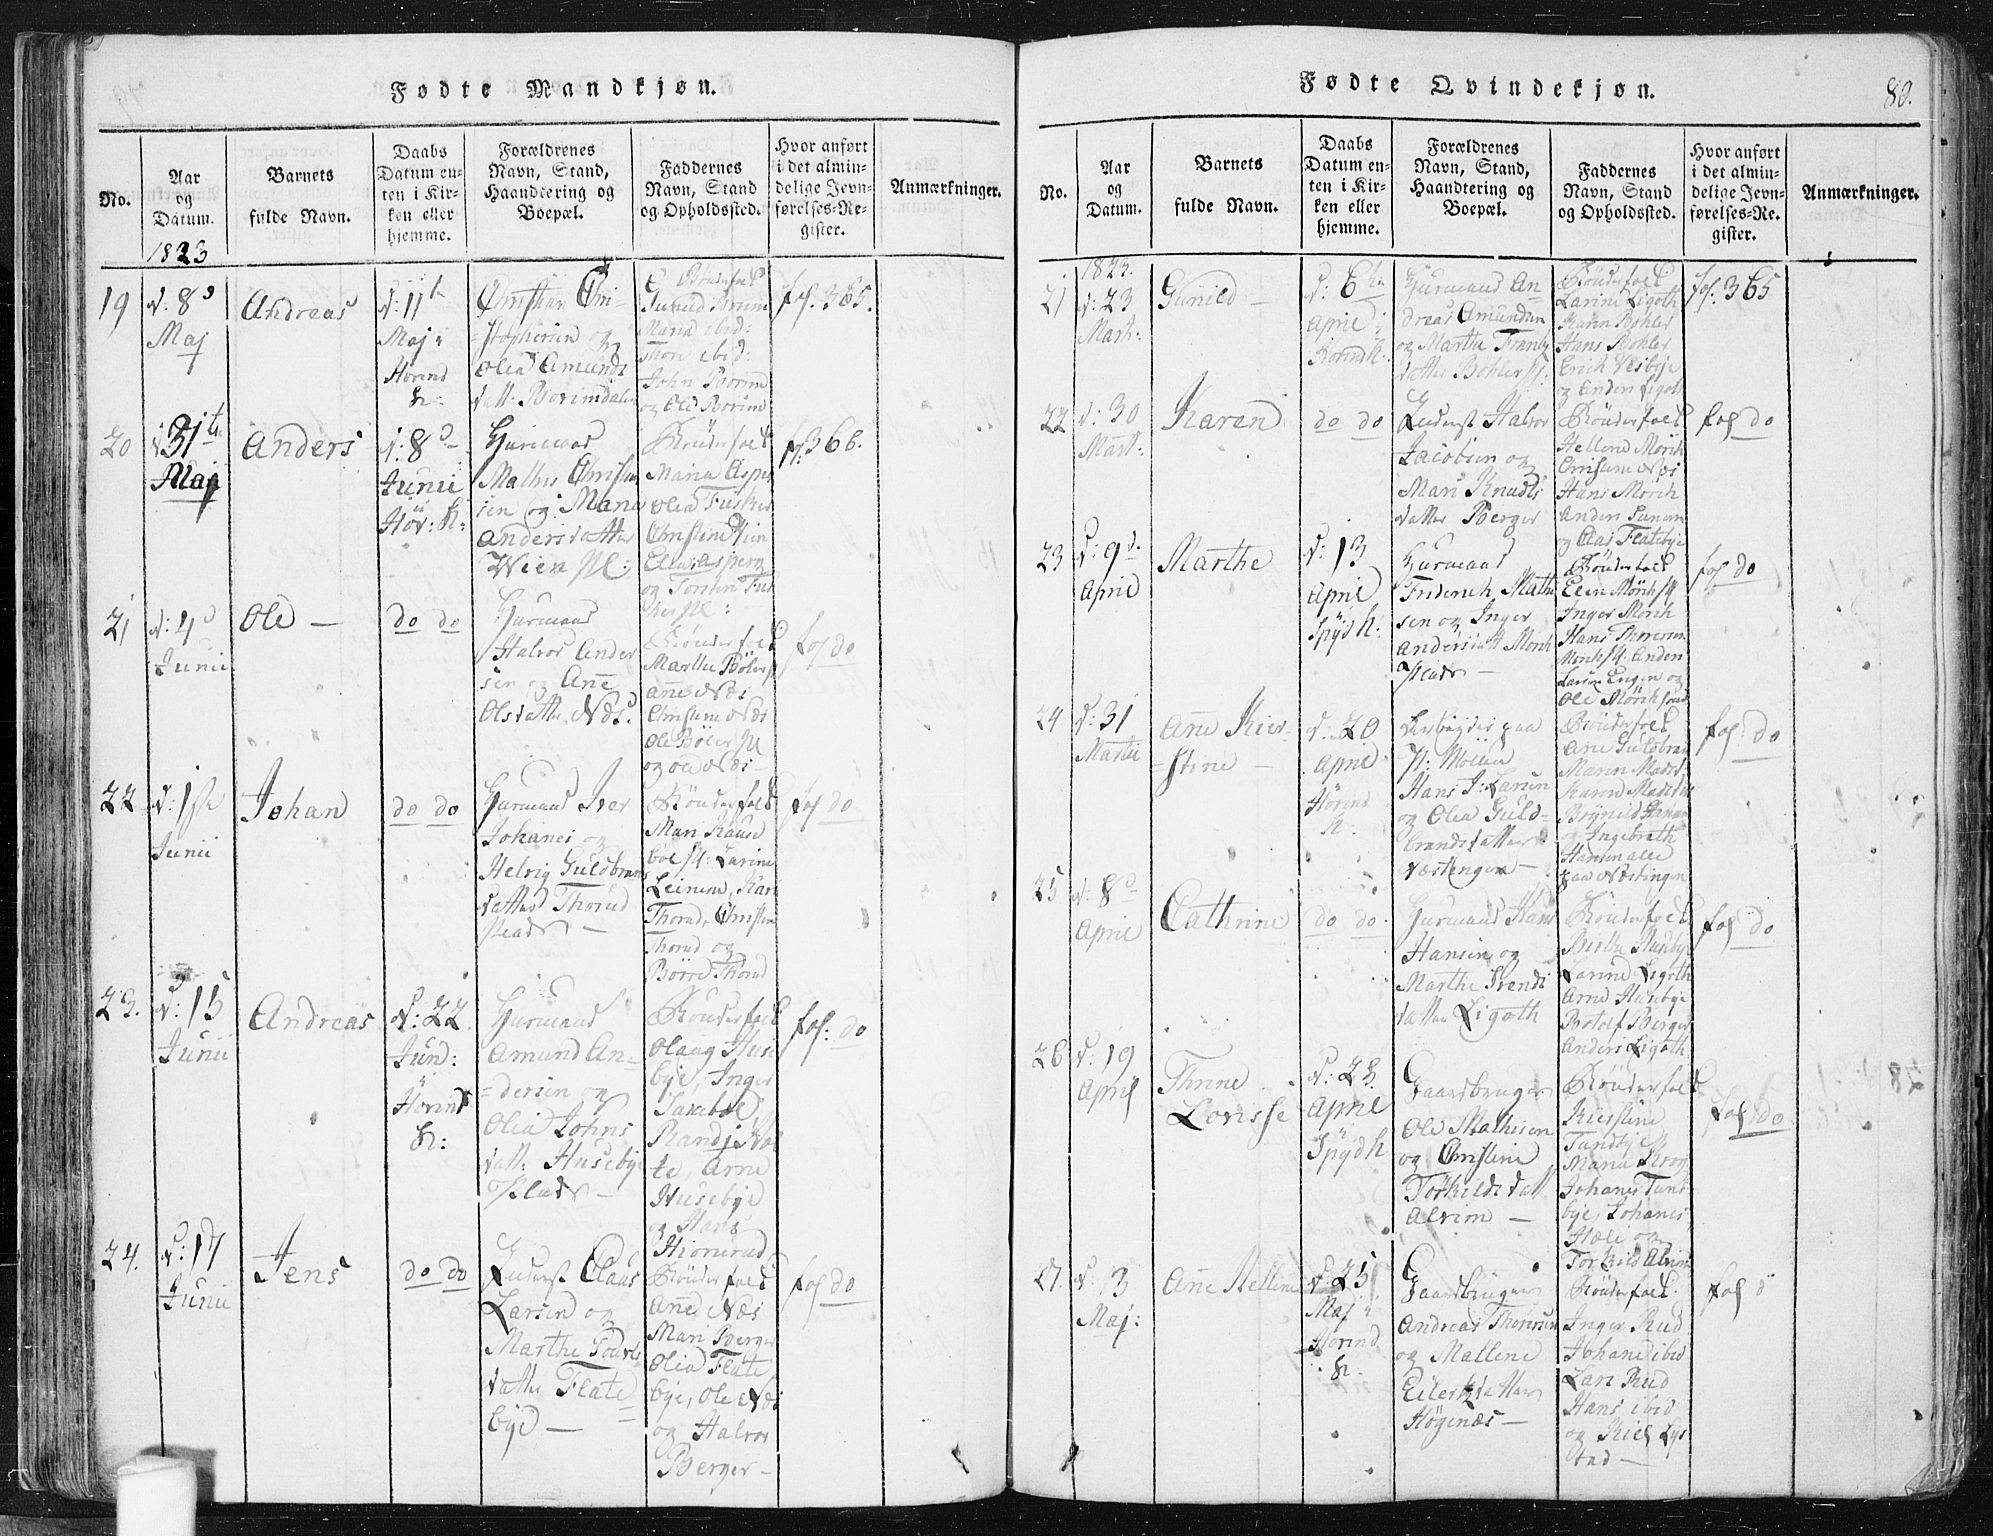 Fødte Mandkjøn.
No.
Aar
og
Datum.
Barnets
fulde Navn.
Daabs
Datum en-
ten i Kir-
ken eller
hjemme.
Forældrenes
Navn, Stand,
Haandtering og
Boepæl.
Faddernes
Navn, Stand
og Opholdssted.
Hvor anført
i det almin-
delige Jevn-
førelses-Re-
gister.
Anmærkninger.
1823
19
d: 8d
Maj
Andreas
d: 11te
Maj i
Hørind
K:
Christian Chri-
=stophersen og
Olea Amunds
datt: Borimdalen
Bønderfolk
Maria ibid:
Thore ibid:
John Borim
og Ole Borim
fol. 365.
20
d 31te
Maj
Anders
d: 8d
Junii
i
Høv: K:
Huusmand
Mathis Christian
sen og Maria
Andersdatter
Wien Pl:
Bønderfolk
Maria Asper
Olea Tusker
Christine Wien
Elias Asperg
og Torsten Tus
ker Pl:
fol 366.
21
d: 4d
Junii
Ole —
do do
Huusmand
Halvor Ander
sen og Anne
Olsdatter Næs
Bønderfolk
Marthe Bøler Pl
Anne Næs
Christine Næs
Ole Bøler Pl
og Ole Næs —
fol do
22
d: 1ste
Junii
Johan
do do
Huusmand Iver
Johanes og
Helvig Guldbrands
datter Thorud
Plads —
Bønderfolk
Mari Kause
bøl Pl: Karine
Leinum, Kari
Thorud, Christen
Thorud og
Børre Thorud
fol do
23.
d: 15
Junii
Andreas
d: 22
Juni:
i
Hørind
K:
Huusmand
Amund An-
=dersen og
Olea Johns
datt: Husebye
Plads —
Bønderfolk
Olaug Huse
bye, Inger
Arne
Husebye
og Hans
Hiorterud
fol: do
24.
d: 17
Junii
Jens
do do
Claus
Larsen og
Marthe Povels
datter Flate
=
bye —
Bønderfolk
Anne Næs
Mari Berger
Olea Flate
bye, Ole Næs
og Halvor
Berger —
fol do
Fødte Qvindekjøn.
80.
No.
Aar
og
Datum.
Barnets
fulde Navn.
Daabs
Datum en-
ten i Kir-
ken eller
hjemme.
Forældrenes
Navn, Stand,
Haandtering og
Boepæl.
Faddernes
Navn, Stand
og Opholdssted.
Hvor anført
i det almin-
delige Jevn-
førelses-Re-
gister.
Anmærkninger.
1823.
21
d: 23
Mart:
Gunild —
d: 6te
April i
Hørind K:
Huusmand An-
dreas Amundsen
og Marthe Frants
datter Bøhler Pl:
Bønderfolk
Karine Ligoth
Karen Bøhler
Hans Bøhler
Erich Væsbye
og Anders Ligoth
fol: 365
22
d: 30
Mart:
Karen
do do
Halvor
Jacobsen og
Mari Knuds
datter Berger
Bønderfolk
Hellene Mørch
Christine Næs
Hans Mørch
og Claus Flatebye
fol do
23
d: 9d.
April
Marthe
d: 13
April
Spyd K:
Huusmand
Friderich Mathi
sen og Inger
Andersdatt Mørch
Plads —
Bønderfolk
Elen Mørch Pl
Inger Mørch
Hans Thoresen
Mørch Pl: Anders
Larsen Engen og
Ole Mørch
fol do
24
d: 31
Martii
Anne Kier-
=stine —
d: 20
April
i
Hørind
K:
paa
Hans J: Larsen
og Olea Guld-
brandsdatter
Næstengen —
Bønderfolk
Ane Guldbrands
Maren Mads d
Karen Madsdat
Brynild Hansen
og Ingebreth
Hansen alle
paa Næstingen
fol: do
25
d: 8d
April
Cathrine
do do.
Huusmand Hans
Hansen og
Marthe Svends
datter Ligoth
Bønderfolk
Berthe Husebye
Karine Ligoth
Arne Husebye
Botolf Berger
Anders Ligoth
fol do
26
d: 19
April
Thrine
Lovisse
d: 28.
April
i
Spyd K
Gaardbruger
Ole Mathisen
og Christine
Torkildsdatt
Alrim —
Bønderfolk
Kiestine
Tundbye
Maria Krog
Johanes Tund
bye, Johanes
Hæli og
Torkild Alrim
fol do
27.
d: 3
Maj:
Anne Hellene
d: 25
Maj i
Hørind
K.
Gaardbruger
Andreas Thoresen
og Mallene
Eilertsdatter
Høgenæs —
Bønderfolk.
Inger Rud
Johane ibid
Lars Rud
Hans ibid
og Kiel Lys
tad —
fol d